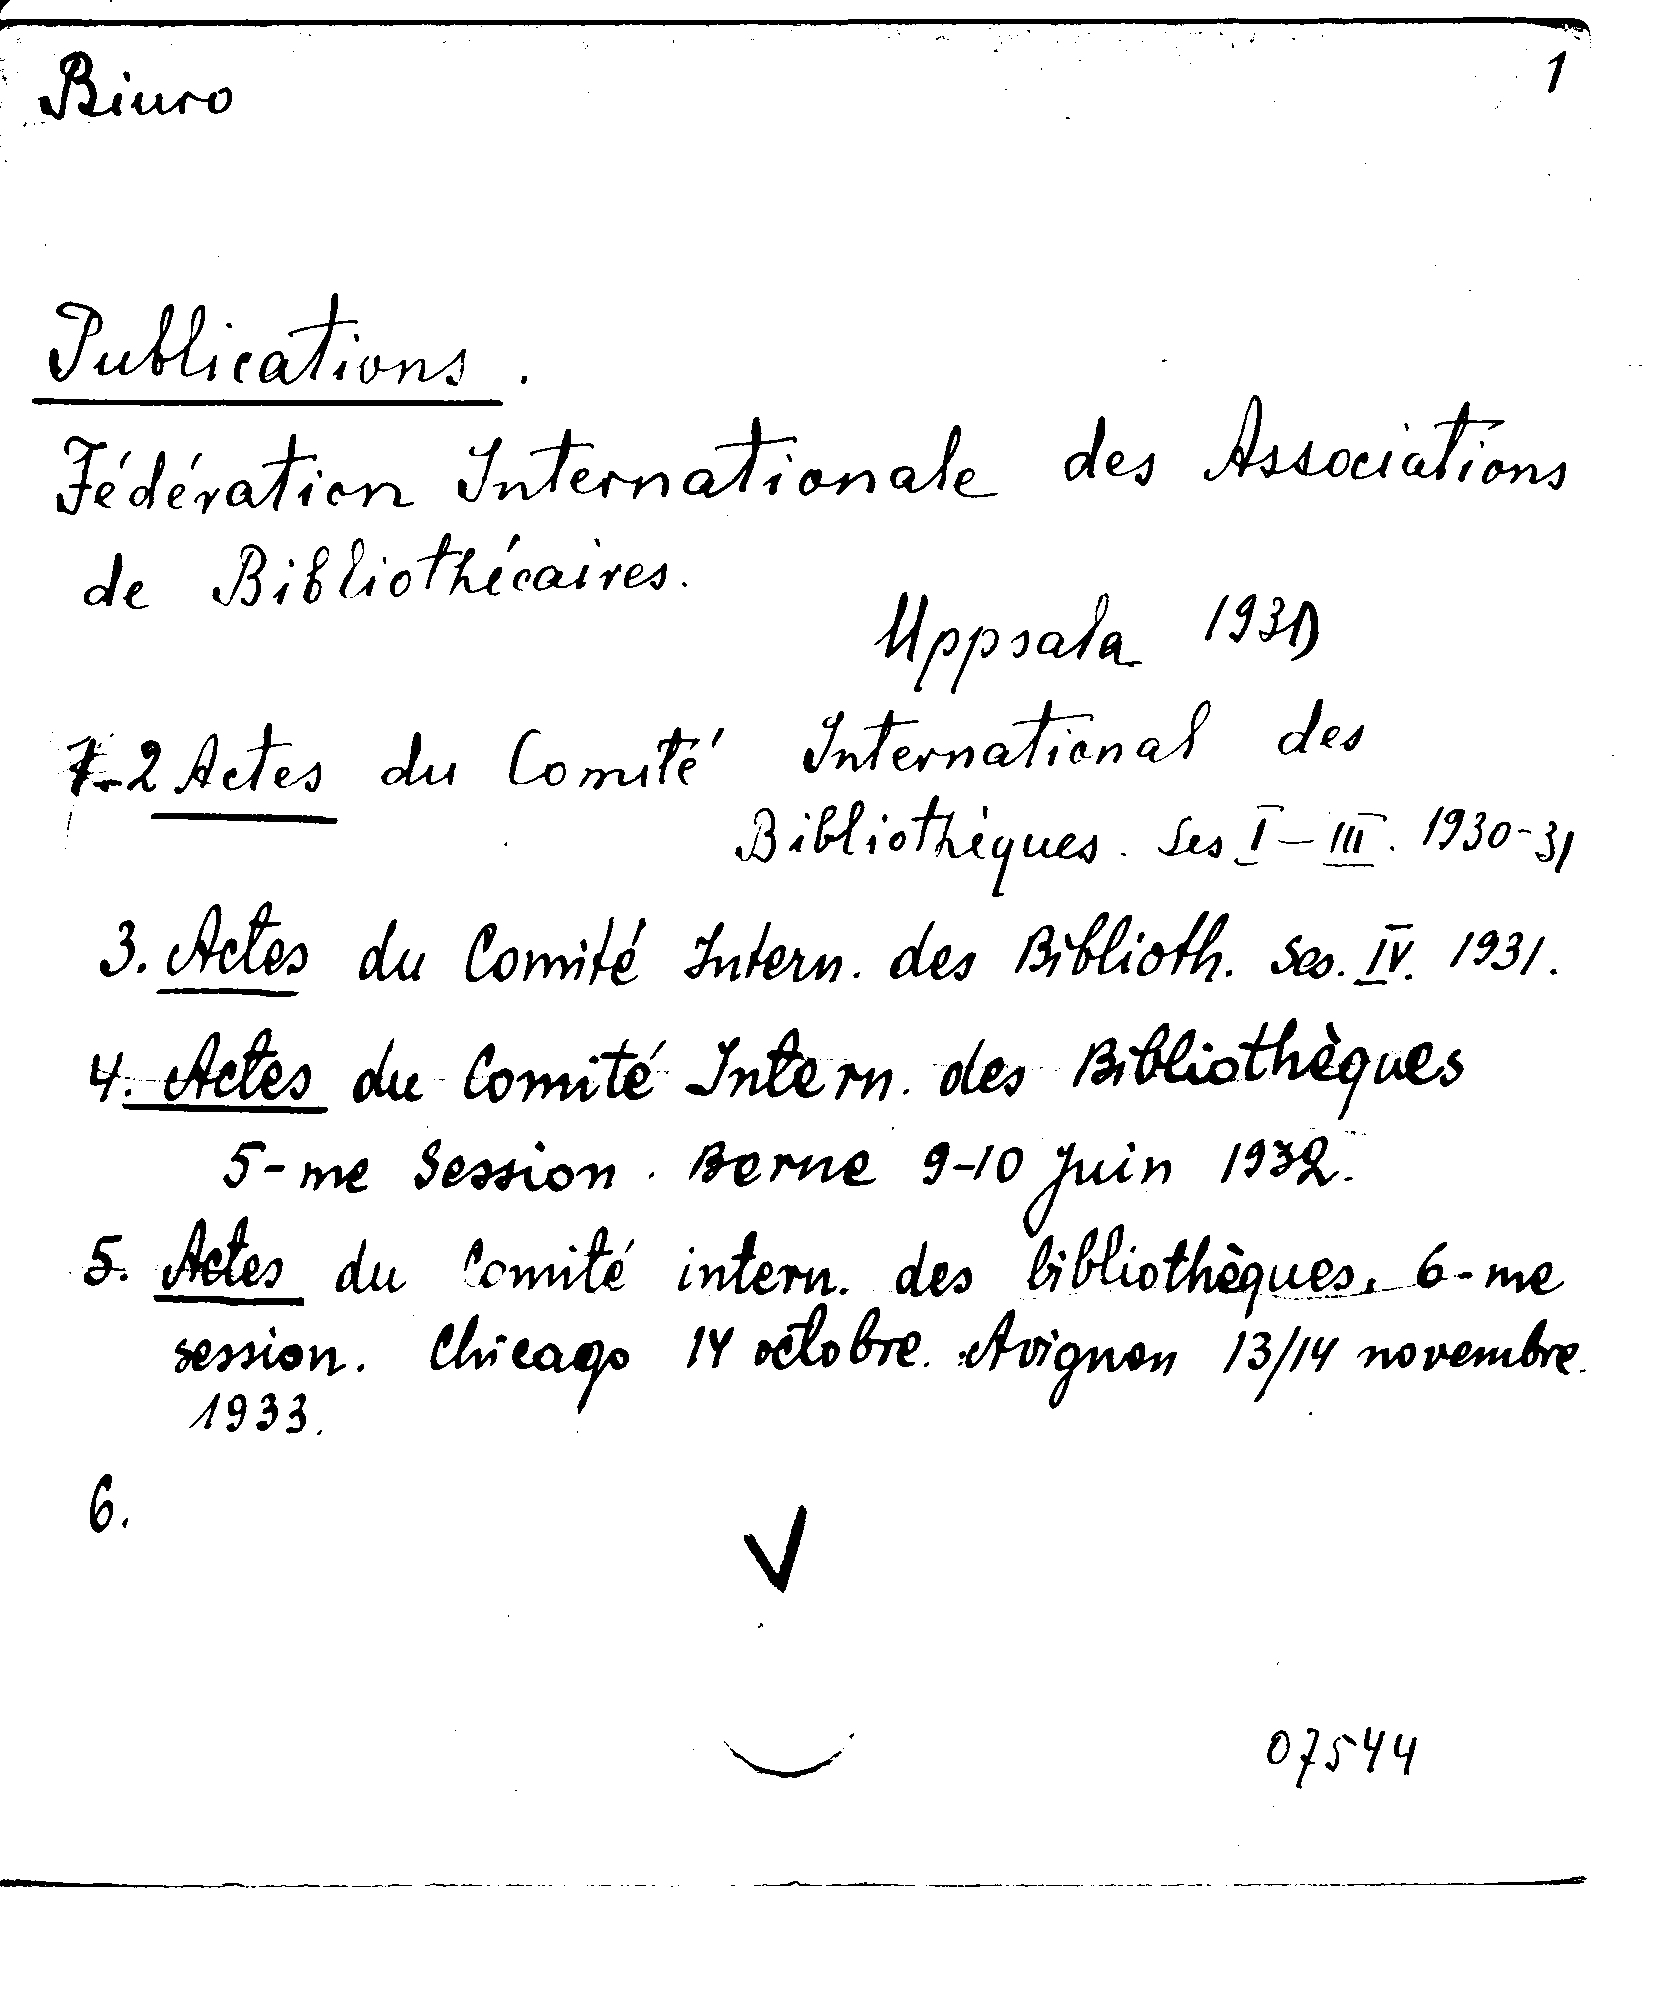 Biuro 1
Publications.
Fédération Internationale des Associations
de Bibliothécaires.
Uppsala 1931)
1-2 Actes du Comité International des
Bibliothèques. Ses I-III. 1930-31
3. Actes du Comité Intern. des Biblioth. Ses. IV. 1931.
4. Actes du Comité Intern. des Bibliothèques
5-me Session. Berne 9-10 Juin 1932.
5. Actes du Comité intern. des bibliothèques. 6-me
session. Chicago 14 octobre. Avignon 13/14 novembre.
1933.
6.
V
07544